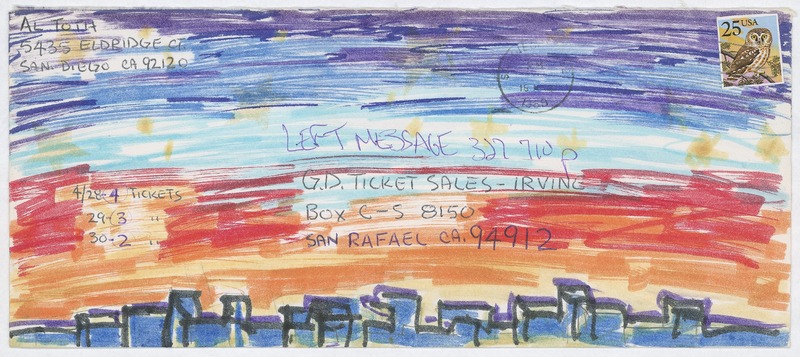 AL TOTH
5435 ELDRIDGE CT
SAN DIEGO CA 92120
25 USA
LEFT MESSAGE 327 710 p
G.D. TICKET SALES - IRVINE
BOX C-S 8150
SAN RAFAEL CA. 94912
4/28-4 TICKETS
29-3 "
30-2 "